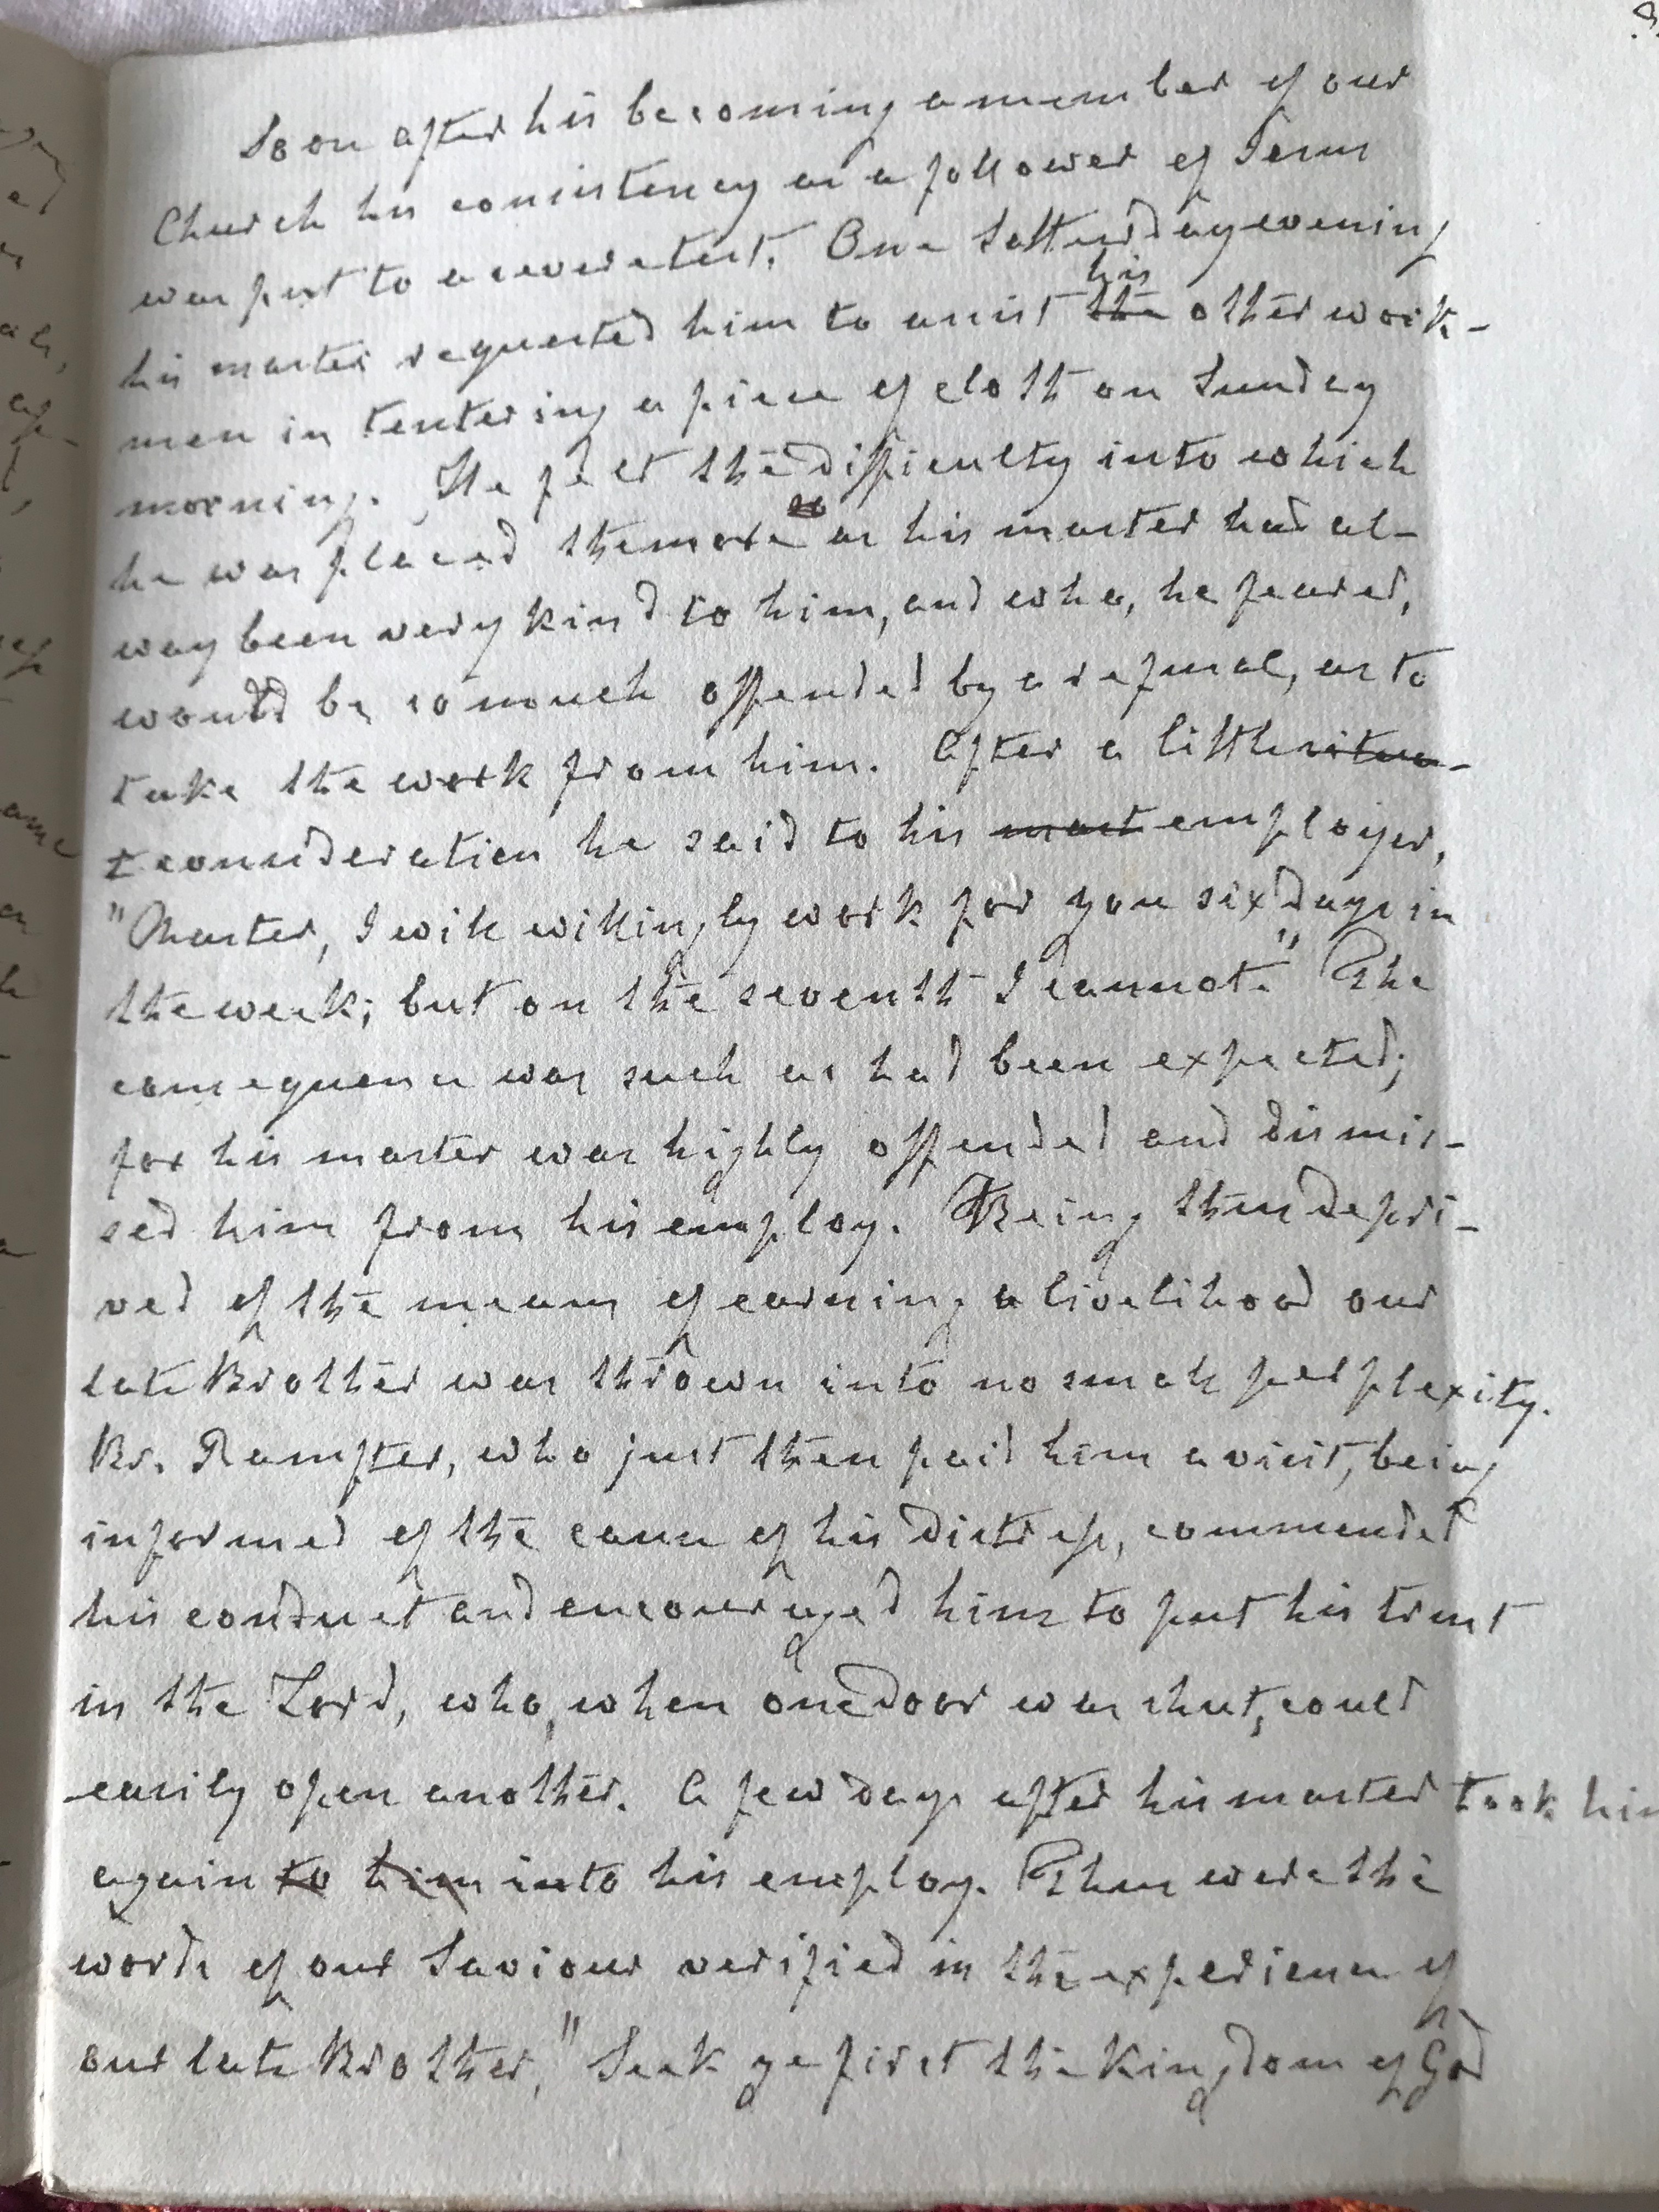 Soon after his becoming a member of our
Church his consistency as a follower of Jesus
was put to a severe test. One Satturday evening
his master requested him to assist ~~the~~ his other work-
men in tentering a piece of cloth on Sunday
morning. He felt the difficulty into which
he was placed the more as his master had al-
way been very kind to him, and who, he feared,
would be so much offended by a refusal, as to
take the work from him. After a little ~~situa-~~
~~t~~ consideration he said to his ~~mast~~ employer,
"Master, I will willingly work for you six Days in
the week; but on the seventh I cannot." The
consequence was such as had been expected;
for his master was highly offended and dismis-
sed him from his employ. Being thus depri-
ved of the means of earning a livelihood our
late Brother was thrown into no small perplexity.
Br. Rampfter, who just then paid him a visit, being
informed of the cause of his distress, commended
his conduct and encouraged him to put his trust
in the Lord, who, when one door was shut, could
easily open another. A few days after his master took him
again ~~to~~ ~~him~~ into his employ. Thus were the
words of our Saviour verified in the experience of
our late Brother, "Seek ye first the Kingdom of God